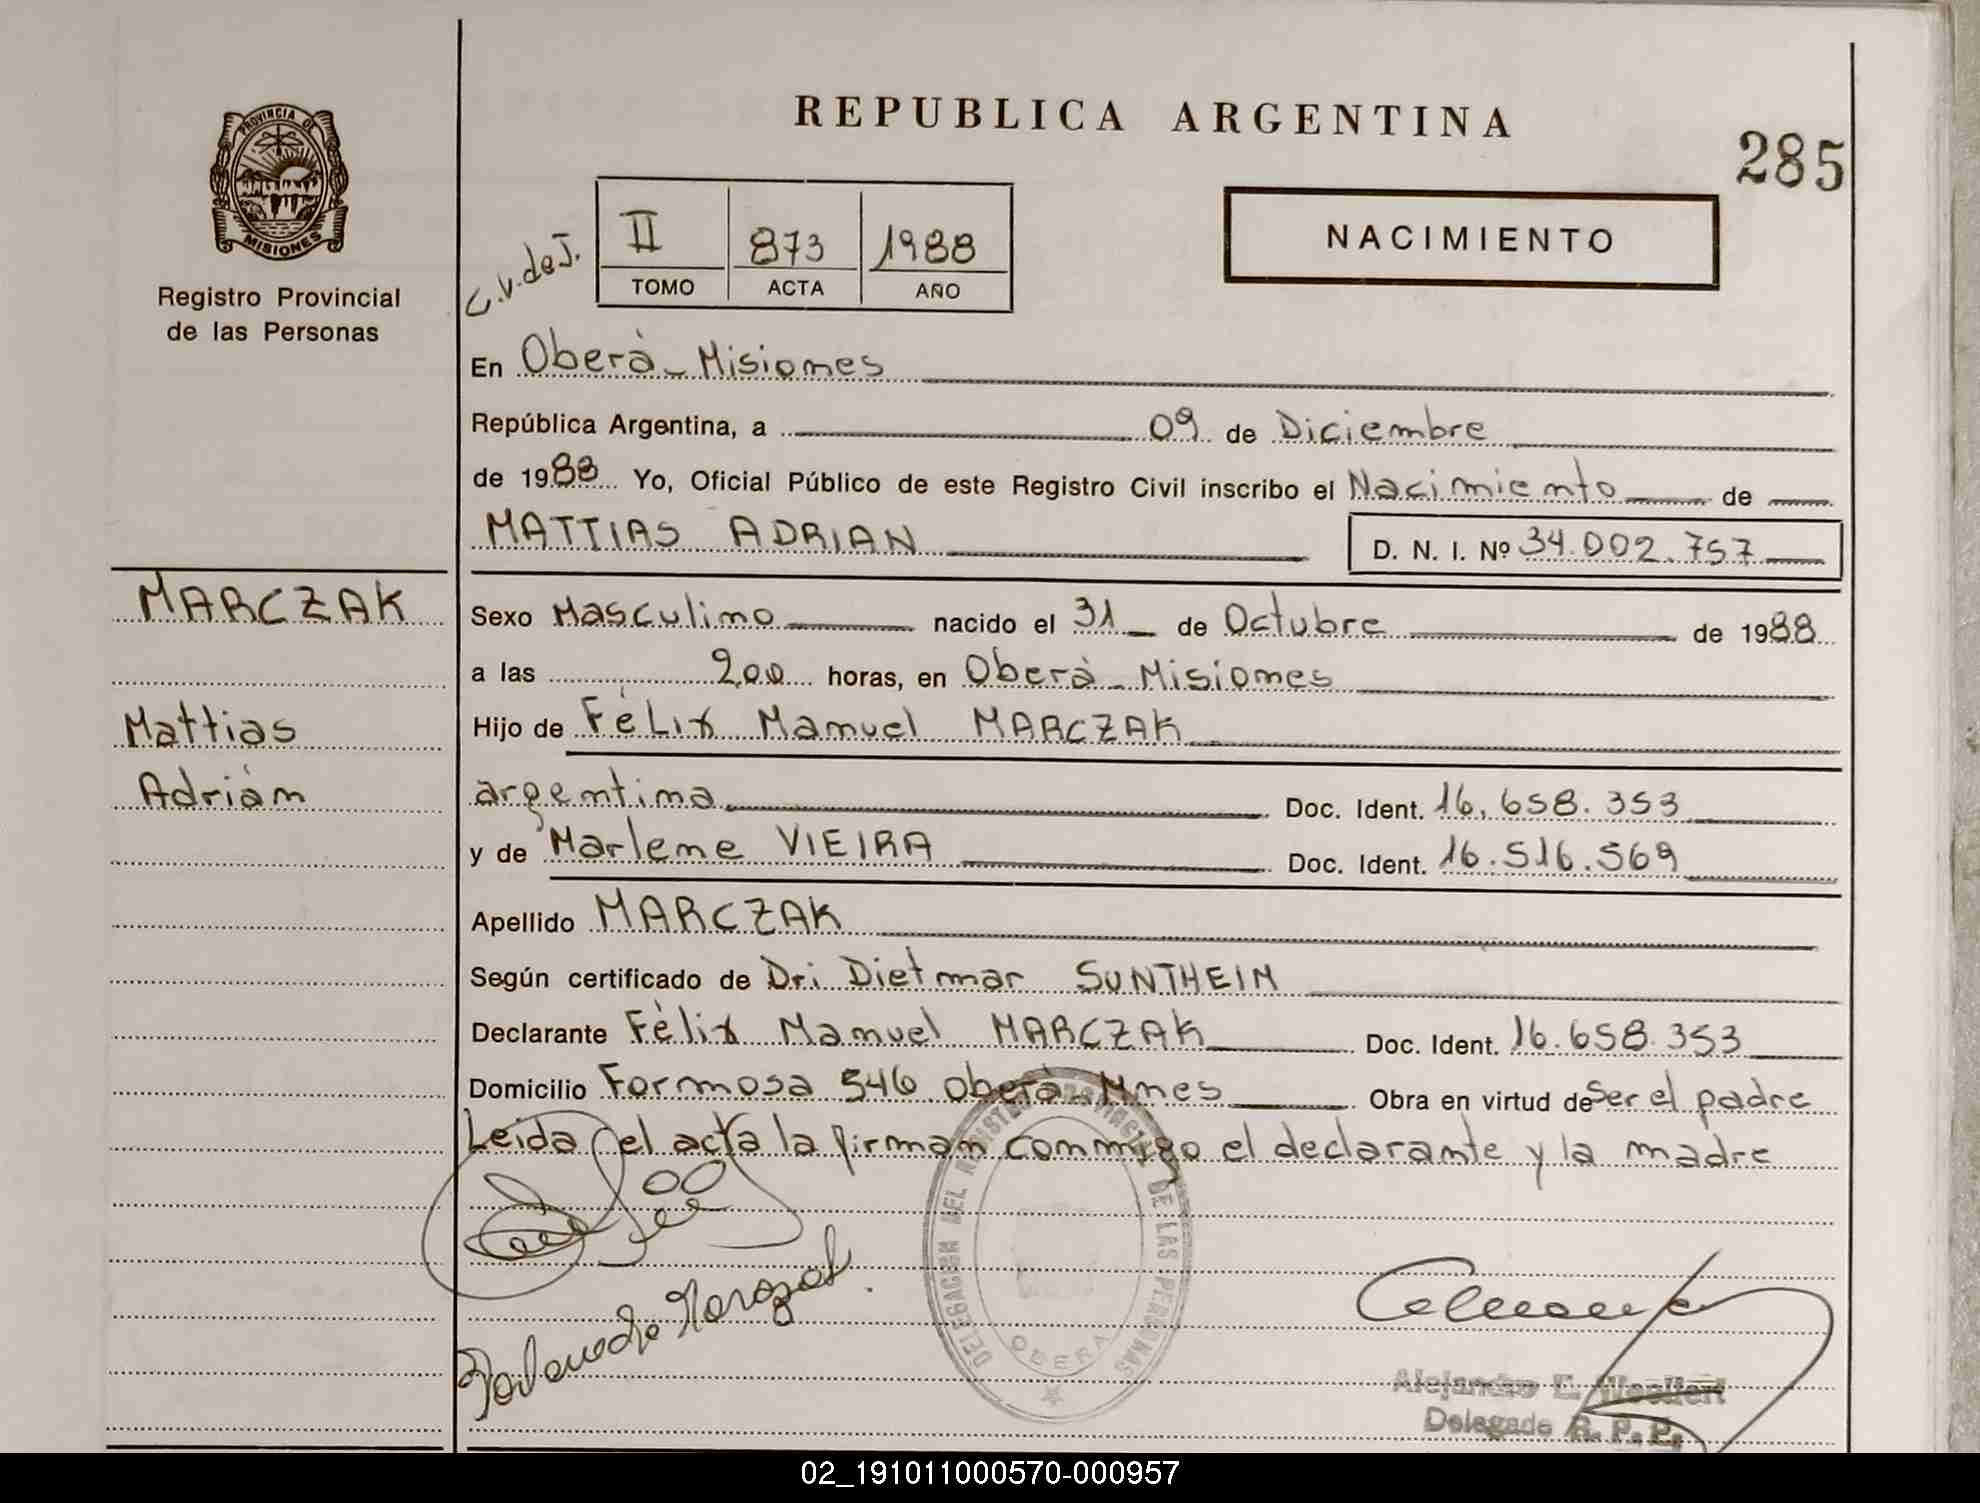 REPUBLICA ARGENTINA
285
PROVINCIA DE
MISIONES
Registro Provincial
de las Personas
C.V. de J.
II 873 1988
TOMO ACTA AÑO
NACIMIENTO
En Oberà - Misiones
República Argentina, a 09 de Diciembre
de 1988 Yo, Oficial Público de este Registro Civil inscribo el Nacimiento de
MATTIAS ADRIAN D. N. I. Nº 34.002.757
MARCZAK
Mattias
Adrián
Sexo Masculino nacido el 31 de Octubre de 1988
a las 2,00 horas, en Oberà - Misiones
Hijo de Fèlix Manuel MARCZAK
argentina Doc. Ident. 16.658.353
y de Marlene VIEIRA Doc. Ident. 16.516.569
Apellido MARCZAK
Según certificado de Dr: Dietmar SUNTHEIM
Declarante Fèlix Manuel MARCZAK Doc. Ident. 16.658.353
Domicilio Formosa 546 oberà - Mnes Obra en virtud de Ser el padre
Leida el acta la firman conmigo el declarante y la madre
DELEGACION DEL REGISTRO PROVINCIAL DE LAS PERSONAS
OBERA
Alejandro E.
Delegado R. P. P.
02_191011000570-000957